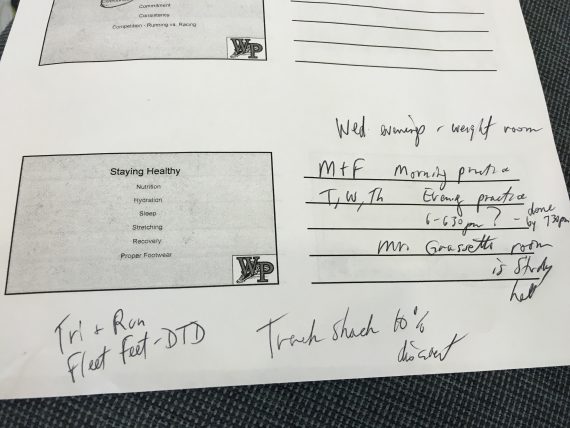 Commitment
Consistency
Competition - Running vs. Racing
WP
Wed evenings - weight room
Staying Healthy
Nutrition
Hydration
Sleep
Stretching
Recovery
Proper Footwear
WP
M+F Morning practice
T, W, Th Evening practice
6-630pm? - done by 730pm
Mr. room
is Study
hall
Tri + Run
Fleet Feet - DTD
Track Shack 10%
discount